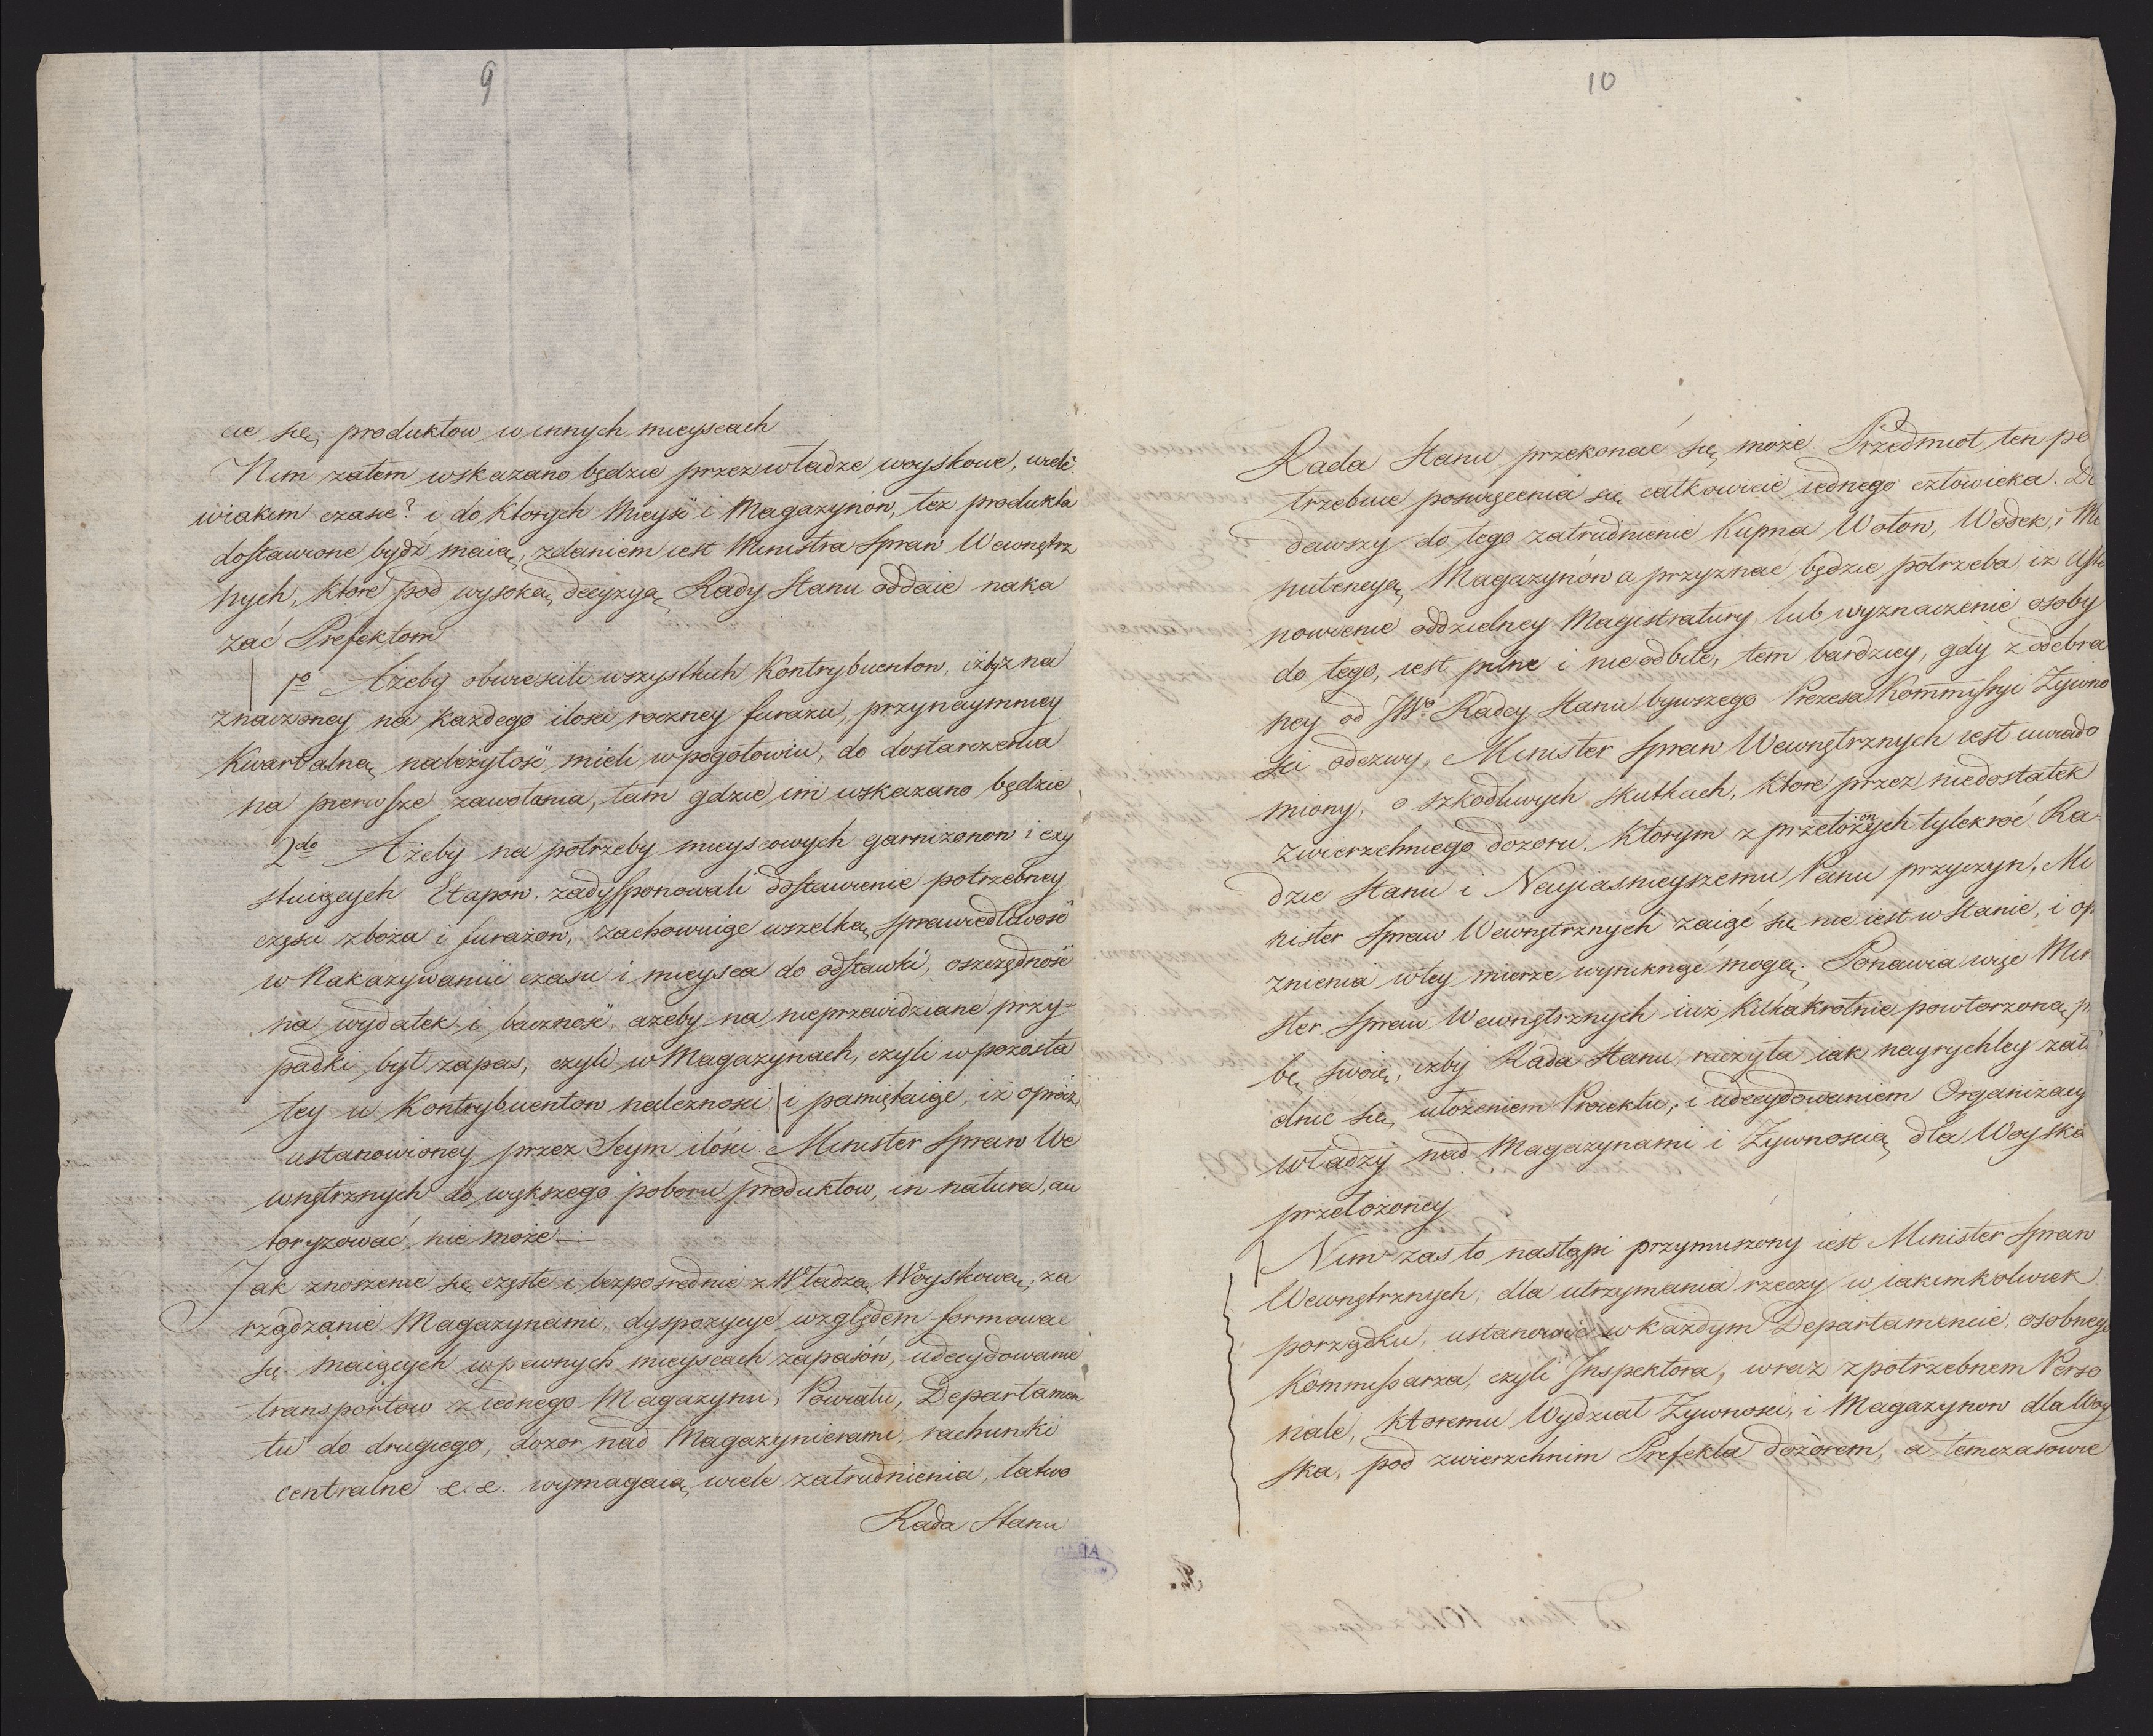 9
cie się, produktow w innych mieyscach
Nim zatem wskazano będzie przez władze woyskowe, wiele?
w iakim czasie? i do ktorych Mieysc i Magazynów, też produkta
dostawione bydź maią, zdaniem iest Ministra Spraw Wewnętrz
nych, ktore pod wysoką decyzyą Rady Stanu oddaie naka
zać Prefektom
1o Ażeby obwieścili wszystkich Kontrybuentow, iżby z na
znaczoney na każdego ilosci roczney furażu, przynaymniey
Kwartalną należytość mieli w pogotowiu, do dostarczenia
na pierwsze zawołania, tam gdzie im wskazano będzie
2do Ażeby na potrzeby mieyscowych garnizonow i exy
stuiących Etapow, zadysponowali dostawienie potrzebney
częsci zboża i furażow, zachowuiąc wszelką sprawiedliwość
w Nakazywaniu czasu i mieysca do odstawki, oszczędność
na wydatek i baczność, ażeby na nieprzewidziane przy-
padki był zapas, czyli w Magazynach, czyli w pozosta
łey u Kontrybuentow należnosci i pamiętaiąc, iż oprocz
ustanowioney przez Seym ilości Minister Spraw We
wnętrznych do większego poboru produktow, in natura, au
toryzować nie może —
Jak znoszenie się częste i bezpośrednie z Władzą Woyskową, za
rządzanie Magazynami, dyspozycye względem formować
się maiących w pewnych mieyscach zapasów, udecydowanie
transportow z iednego Magazynu, Powiatu, Departamen
tu do drugiego, dozor nad Magazynierami, rachunki
centralne &. &. wymagaią wiele zatrudnienia, łatwo
Rada Stanu
10
Rada Stanu przekonać się może. Przedmiot ten po
trzebuie poswięcenia się całkowicie iednego człowieka. Do
dawszy do tego zatrudnienie Kupna Wołow, Wodek, i Ma
nutencyą Magazynów a przyznać będzie potrzeba iż Usta
nowienie oddzielney Magistratury lub wyznaczenie osoby
do tego, iest pilne i nieodbite, tem bardziey, gdy z odebra
ney od JWo Radcy Stanu bywszego Prezesa Kommissyi Żywno
sci odezwy, Minister Spraw Wewnętrznych iest uwiado
miony, o szkodliwych skutkach, ktore przez niedostatek
zwierzchniego dozoru. Ktorym z przełożonych tylekroć Ra
dzie Stanu i Nayiasnieyszemu Panu przyczyn, Mi
nister Spraw Wewnętrznych zaiąć się nie iest w Stanie, i op
znienia w tey mierze wyniknąć mogą. Ponawia więc Mini
ster Spraw Wewnętrznych iuż kilkakrotnie powtorzoną p
bę swoię, iżby Rada Stanu raczyła iak nayrychley zatru
dnić się, ułożeniem Proiektu, i udecydowaniem Organizacyi
władzy nad Magazynami i Żywnoscią dla Woyska
przełożoney
Nim zas to nastąpi przymuszony iest Minister Spraw
Wewnętrznych, dla utrzymania rzeczy w iakimkolwiek
porządku, ustanowić w każdym Departamencie, osobnego
Kommissarza, czyli Inspektora, wraz z potrzebnem Perso
nale, ktoremu Wydział Żywnosci, i Magazynow dla Woy
ska, pod zwierzchnim Prefekta dozorem, a temczasowie